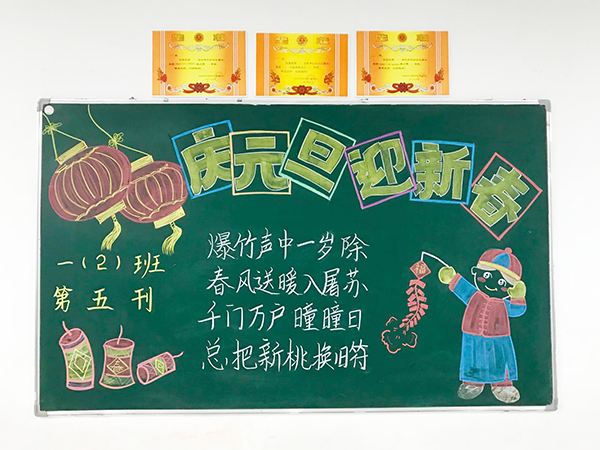 庆元旦迎新春
一(2)班
第五刊
爆竹声中一岁除
春风送暖入屠苏
千门万户曈曈日
总把新桃换旧符
福